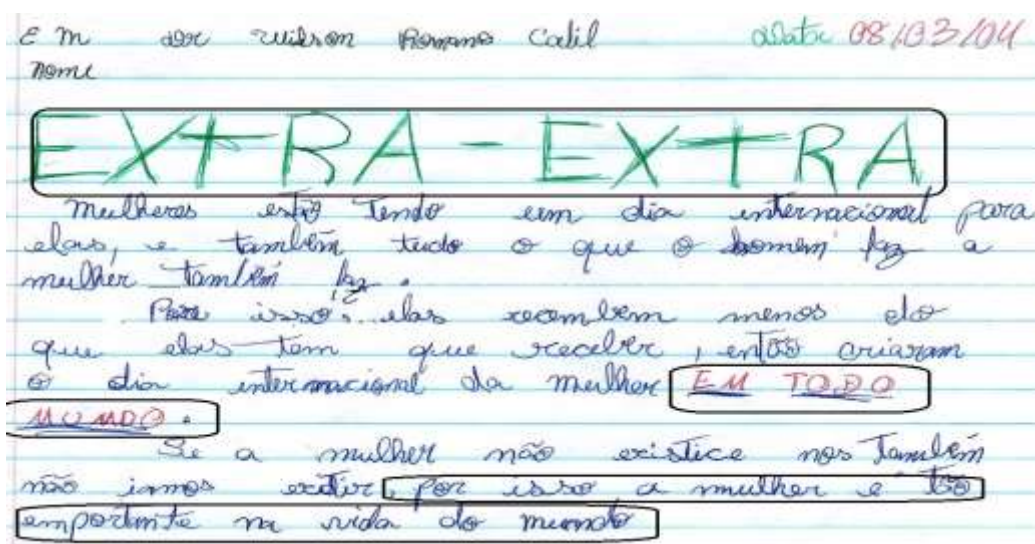 E M dor Wilson Romano Calil Data 08/03/04
nome
EXTRA - EXTRA
mulheres estão tendo um dia internacional para
elas, e também tudo o que o homem faz a
mulher também faz.
Para isso, elas recembem menos do
que elas tem que receber, então criaram
o dia internacional da mulher EM TODO
MUNDO.
Se a mulher não existice nos também
não iamos existir, por isso a mulher é tão
emportante na vida do mundo